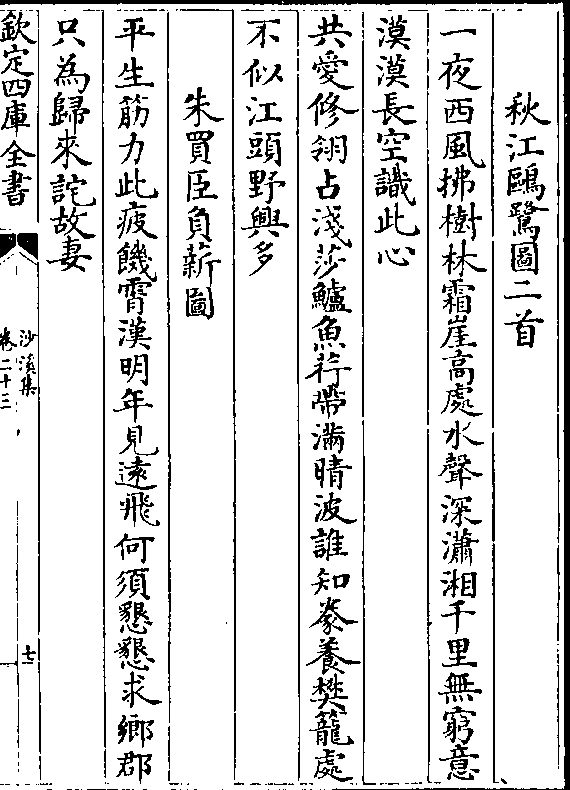 秋江鷗鷺圖二首
一夜西風拂樹林霜崖高處水聲深瀟湘千里無窮意
漠漠長空識此心
共愛修翎占淺莎鱸魚荇帶滿晴波誰知豢養樊籠處
不似江頭野興多
朱買臣負薪圖
平生筋力此疲饑霄漢明年見遠飛何須懇懇求鄉郡
只為歸來詫故妻
欽定四庫全書
沙溪集
卷二十三
七